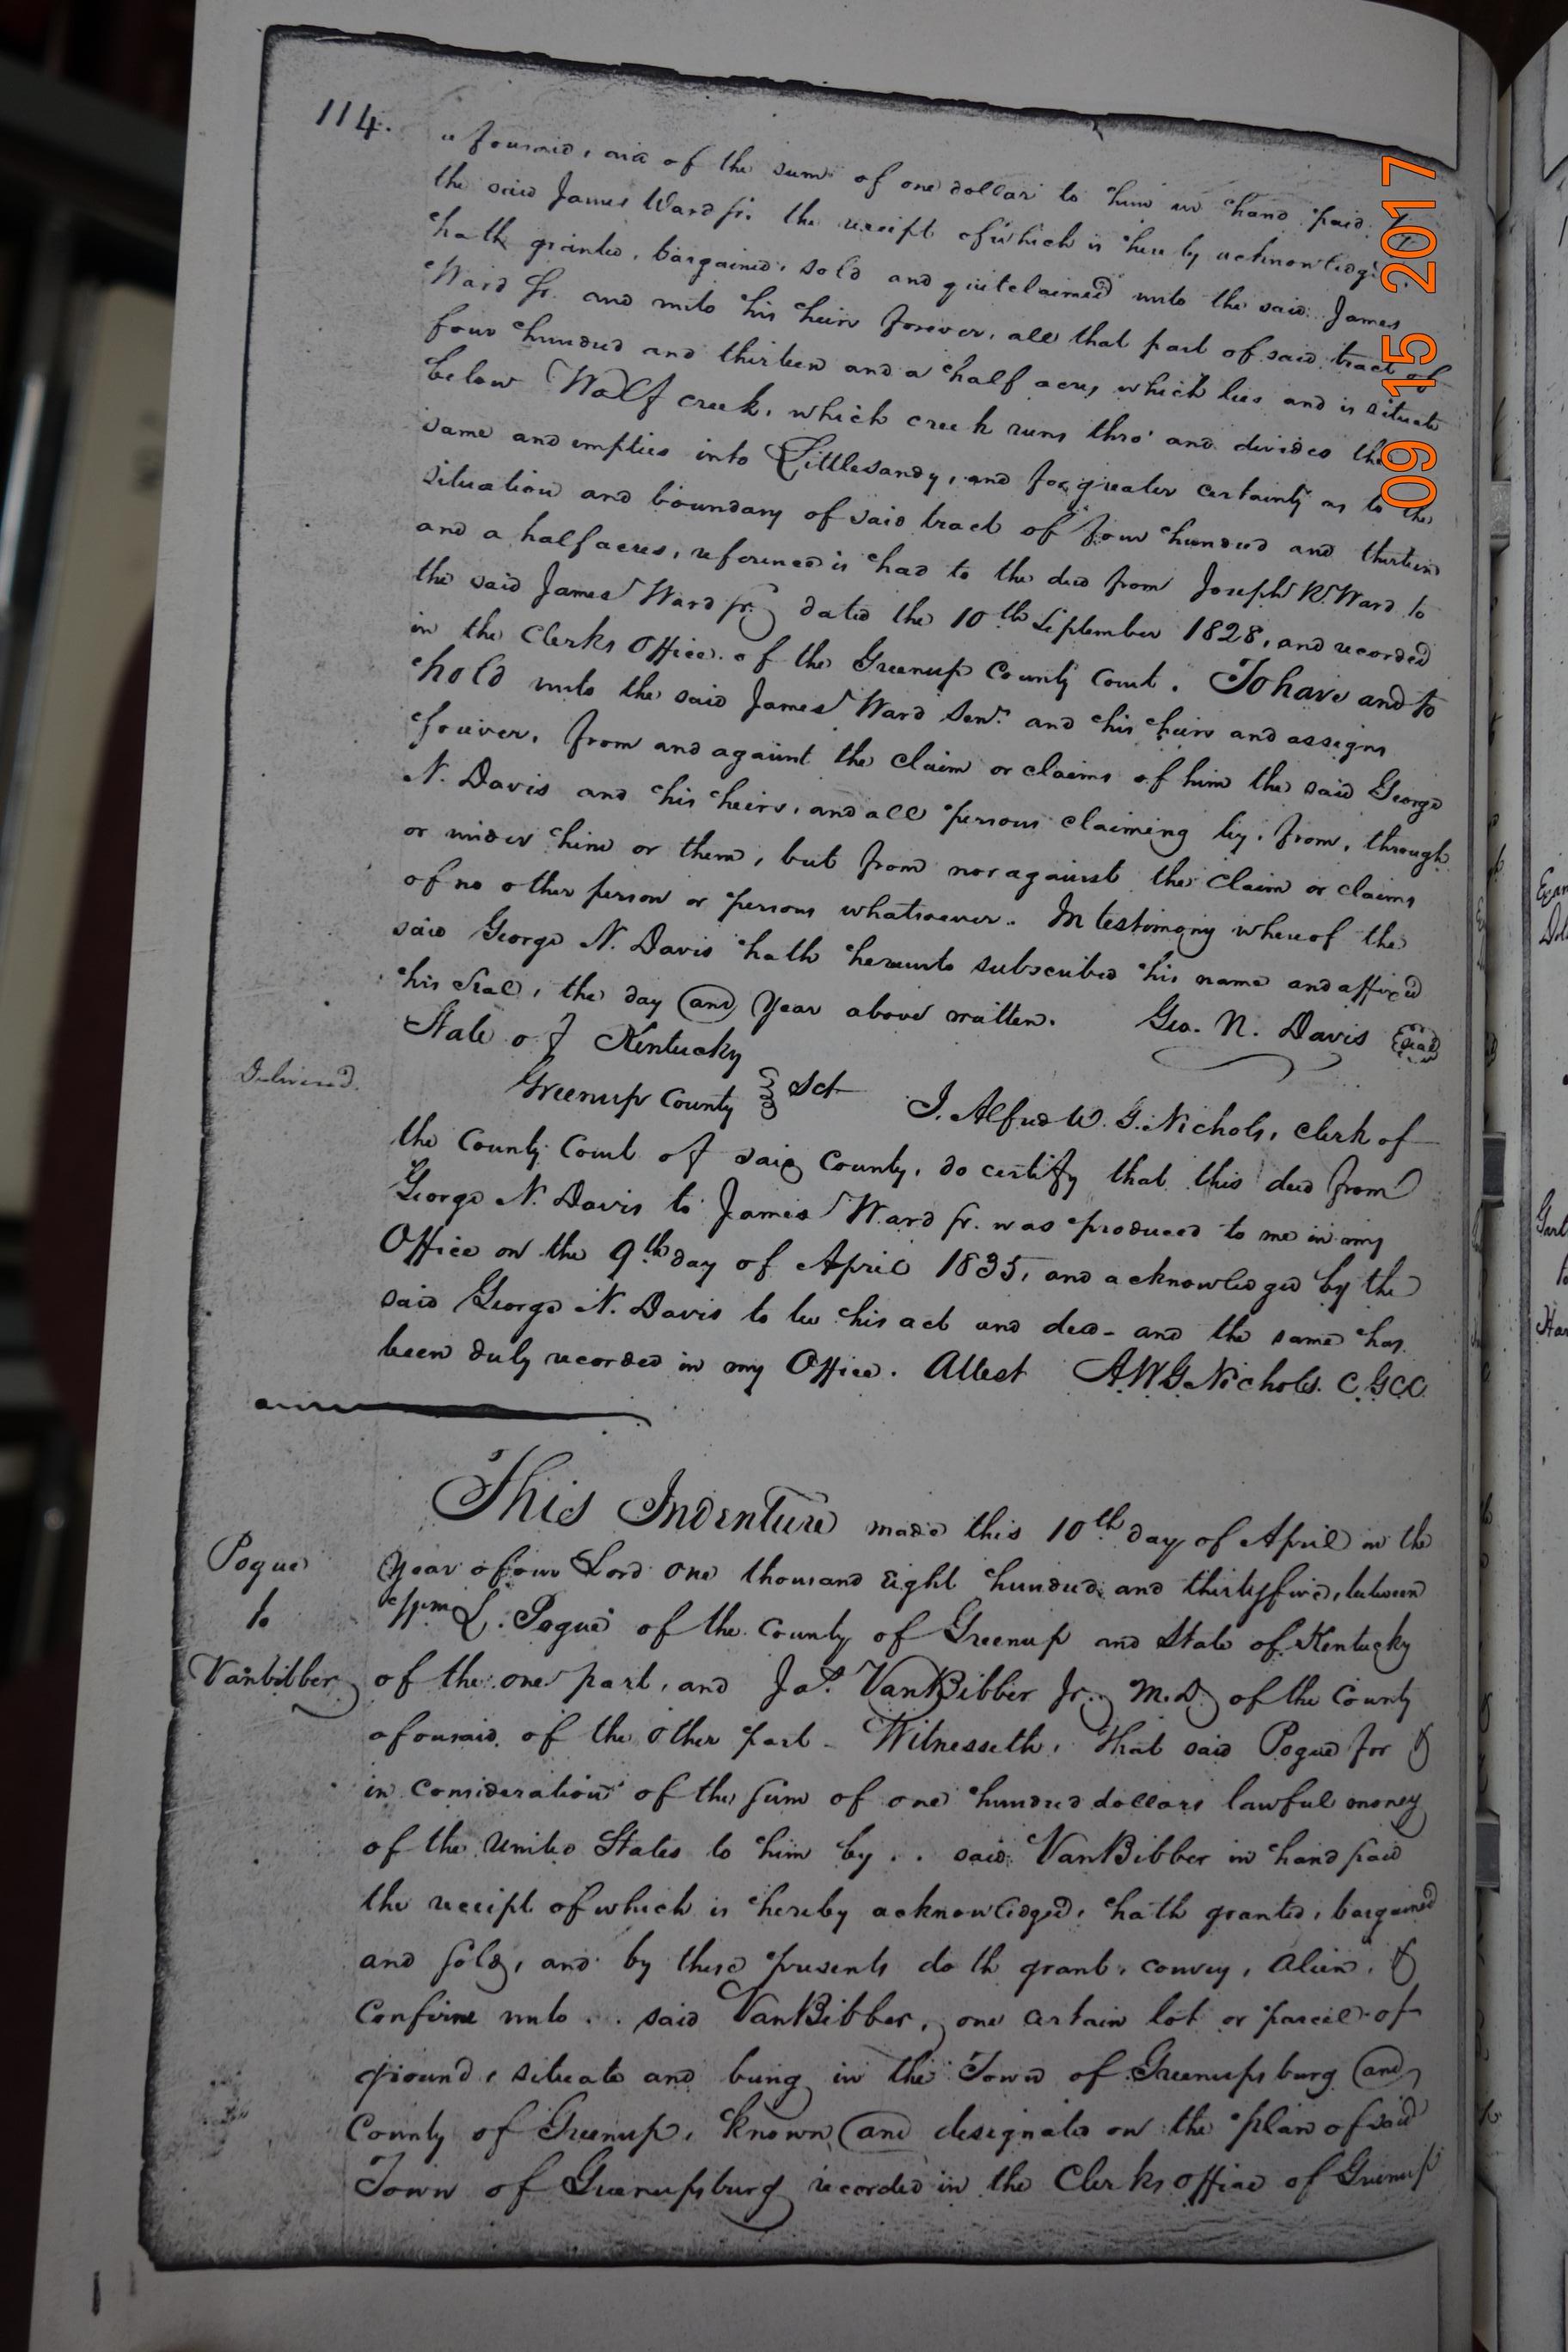 114.
aforesaid, and of the sum of one dollar to him in hand paid by
the said James Ward Jr. the receipt of which is hereby acknowledg'd
hath granted, bargained, sold and quitclaimed unto the said James
Ward Jr. and unto his heirs forever, all that part of said tract of
four hundred and thirteen and a half acres, which lies and is situate
below Wolf creek, which creek runs thro' and divides the
same and empties into Littlesandy, and for greater certainty as to the
situation and boundary of said tract of four hundred and thirteen
and a half acres, reference is had to the deed from Joseph R. Ward to
the said James Ward Jr. dated the 10th September 1828, and recorded
in the Clerks Office of the Greenup County Court. To have and to
hold unto the said James Ward Senr. and his heirs and assigns
forever, from and against the claim or claims of him the said George
N. Davis and his heirs, and all persons claiming by, from, through
or under him or them, but from nor against the claim or claims
of no other person or persons whatsoever. In testimony whereof the
said George N. Davis hath hereunto subscribed his name and affixed
his seal, the day and year above written. Geo. N. Davis seal
State of Kentucky
Delivered.
Greenup County Sct I. Alfred W. G. Nichols, clerk of
the County Court of said County, do certify that this deed from
George N. Davis to James Ward Jr. was produced to me in my
Office on the 9th day of April 1835, and acknowledged by the
said George N. Davis to be his act and deed - and the same has
been duly recorded in my Office. Attest A.W.G. Nichols. C.G.C.C.
This Indenture made this 10th day of April in the
Pogue
to
Vanbibber
Year of our Lord one thousand Eight hundred and thirtyfive, between
Wm L. Pogue of the County of Greenup and State of Kentucky
of the one part, and Jas. VanBibber Jr. M.D. of the County
aforesaid of the other part - Witnesseth, that said Pogue for &
in consideration of the sum of one hundred dollars lawful money
of the United States to him by . . said VanBibber in hand paid
the receipt of which is hereby acknowledged, hath granted, bargained
and sold, and by these presents doth grant, convey, alien, &
confirm unto . . said VanBibber, one certain lot or parcel of
ground, situate and being in the Town of Greenupsburg and
County of Greenup, known and designated on the plan of said
Town of Greenupsburg recorded in the Clerks Office of Greenup
09 15 2017